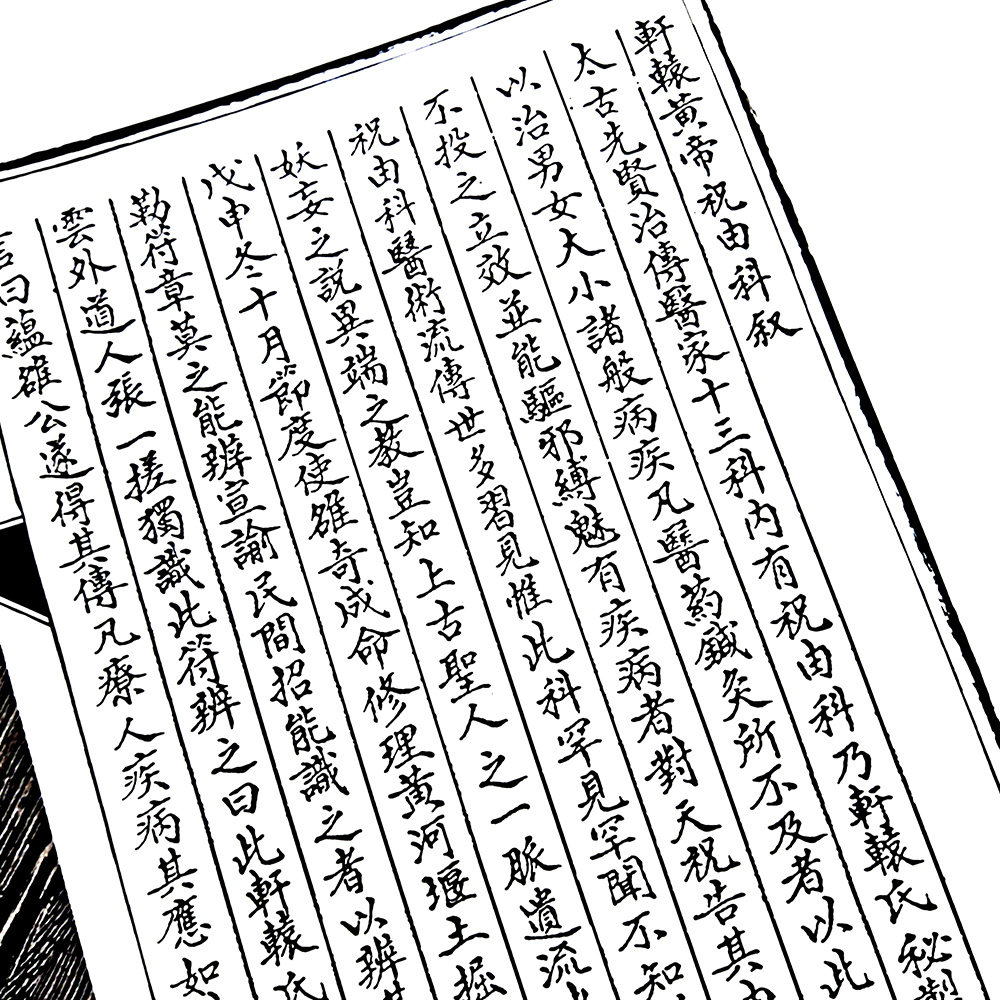 軒轅黃帝祝由科叙
太古先賢治傳醫家十三科內有祝由科乃軒轅氏秘製
以治男女大小諸般病疾凡醫药鍼灸所不及者以此
不投之立效並能驅邪縛魅有疾病者對天祝告其內
祝由科醫術流傳世多習見惟此科罕見罕聞不知
妖妄之說異端之教豈知上古聖人之一脈遺流
戊申冬十月節度使雒奇成命修理黃河堰土掘
勒符章莫之能辨宣諭民間招能識之者以辨其
雲外道人張一搓獨識此符辨之曰此軒轅氏
言曰蘊雒公遂得其傳凡療人疾病其應如